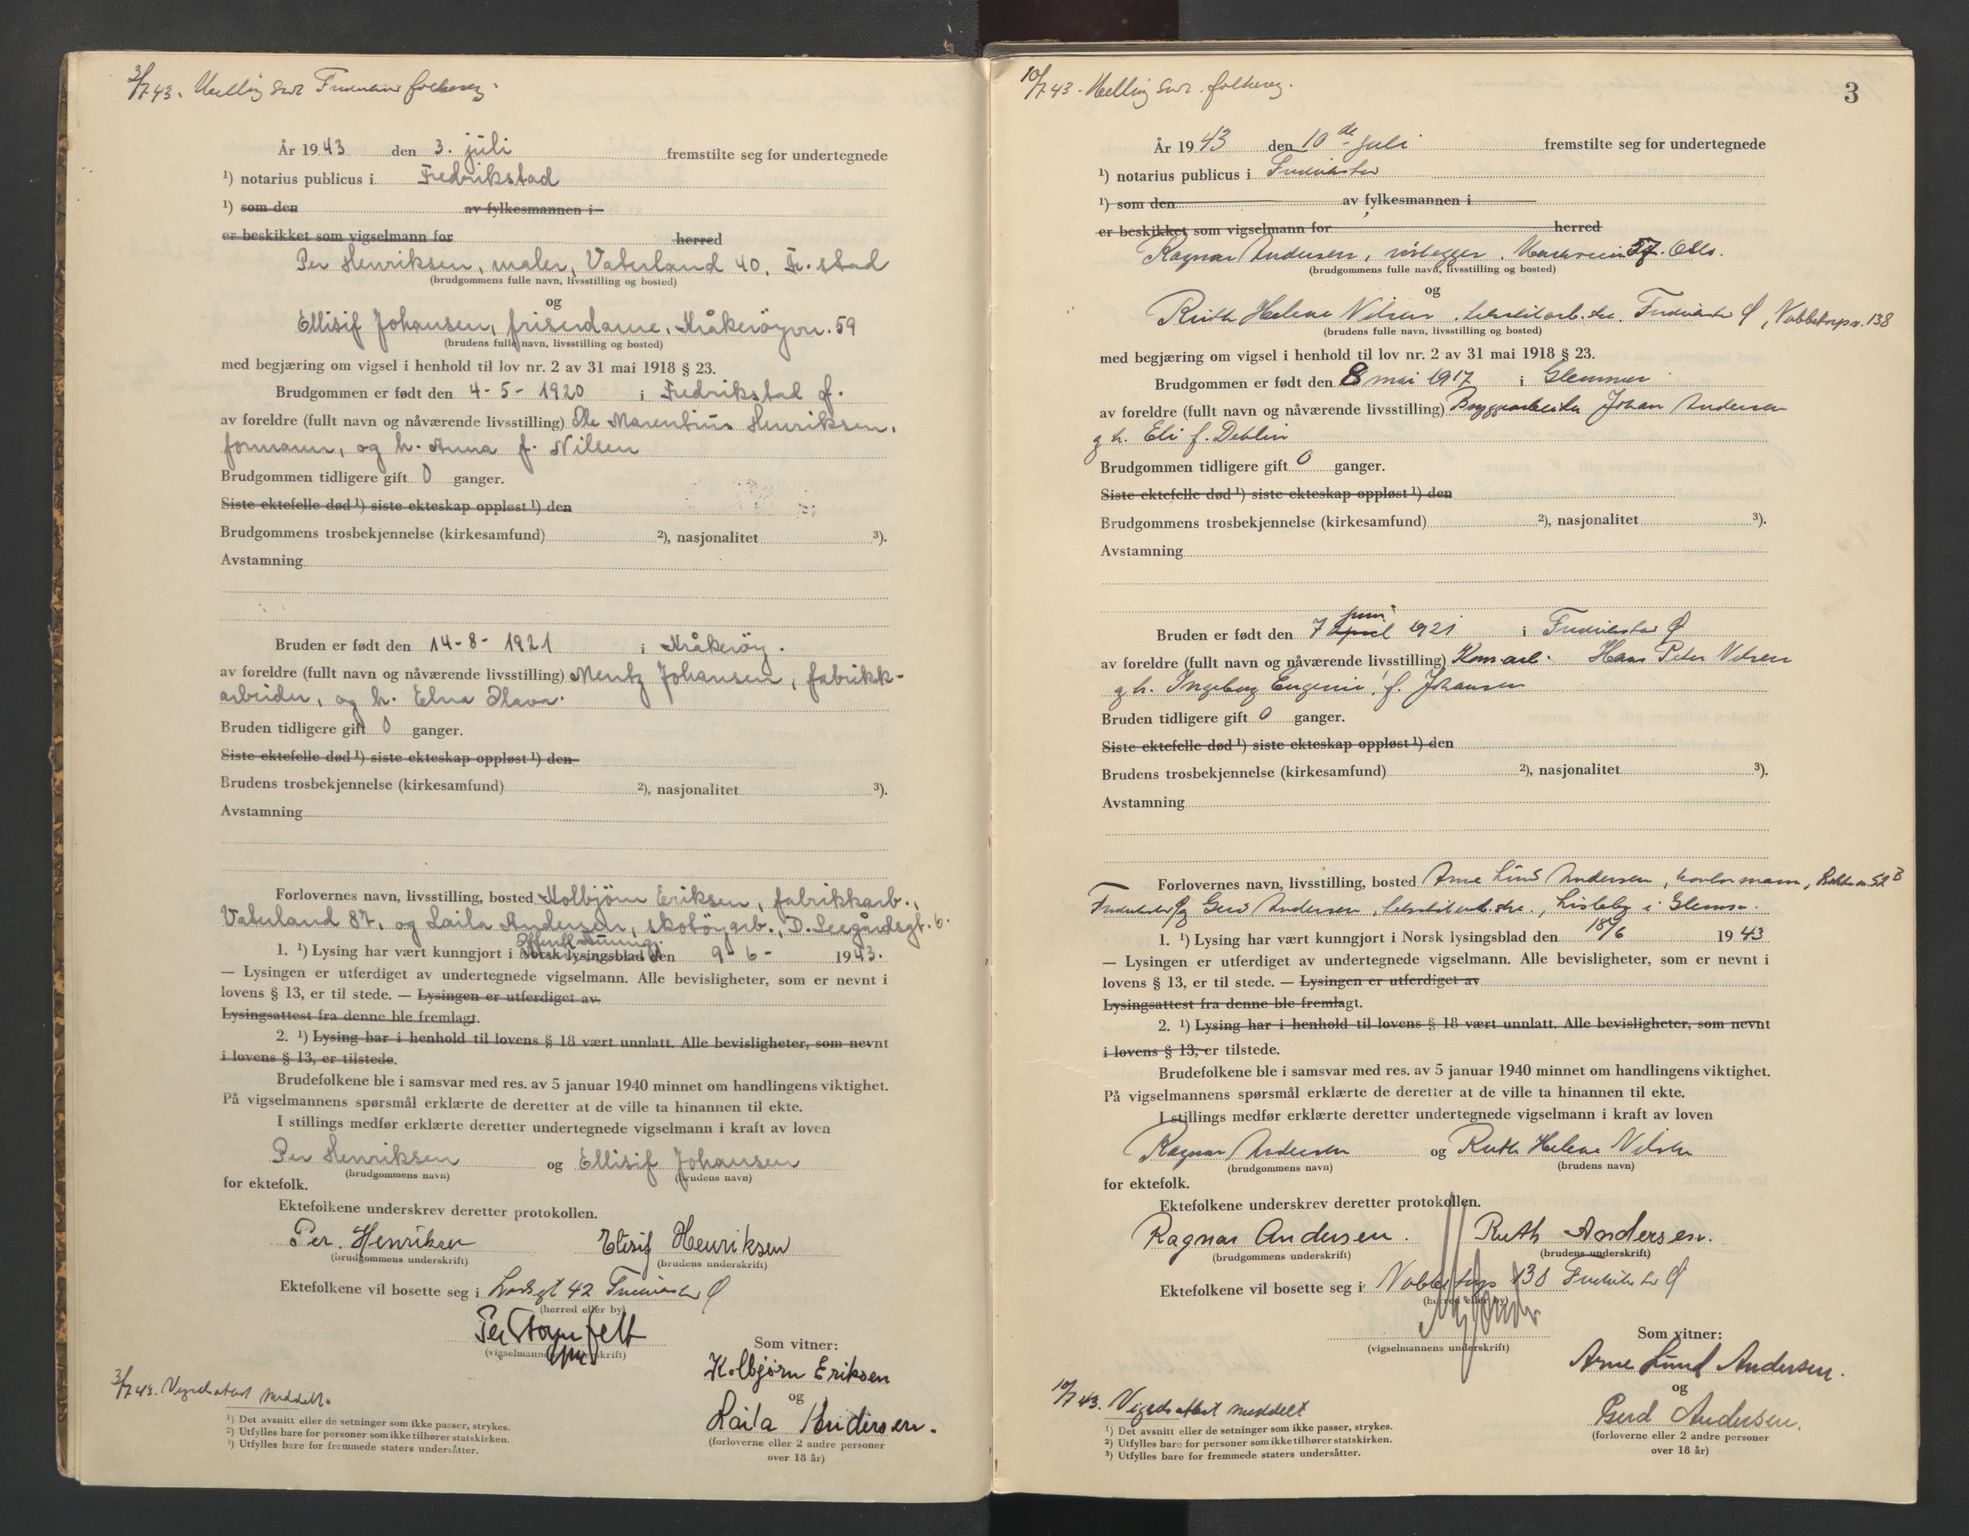 3/7 43. Melding sendt Fredrikstad folkereg.
År 1943 den 3. juli fremstilte seg for undertegnede
¹) notarius publicus i Fredrikstad
¹) som den av fylkesmannen i
er beskikket som vigselmann for herred
Per Henriksen, maler, Vaterland 40, Fr.stad
(brudgommens fulle navn, livsstilling og bosted)
og
Ellisif Johansen, friserdame, Kråkerøyvn. 59
(brudens fulle navn, livsstilling og bosted)
med begjæring om vigsel i henhold til lov nr. 2 av 31 mai 1918 § 23.
Brudgommen er født den 4-5-1920 i Fredrikstad
av foreldre (fullt navn og nåværende livsstilling) Ole Marentius Henriksen,
formann, og h. Anna f. Nilsen
Brudgommen tidligere gift 0 ganger.
Siste ektefelle død ¹) siste ekteskap oppløst ¹) den
Brudgommens trosbekjennelse (kirkesamfund) ²), nasjonalitet ³).
Avstamning
Bruden er født den 14-8-1921 i Kråkerøy.
av foreldre (fullt navn og nåværende livsstilling) Mentz Johansen, fabrikk-
arbeider, og h. Elna Olava.
Bruden tidligere gift 0 ganger.
Siste ektefelle død ¹) siste ekteskap oppløst ¹) den
Brudens trosbekjennelse (kirkesamfund) ²), nasjonalitet ³).
Avstamning
Forlovernes navn, livsstilling, bosted Kolbjörn Eriksen, fabrikkarb.,
Vaterland 87, og Laila Andersen, skotöyarb., D. Leegårdsgt. 6.
1. ¹) Lysing har vært kunngjort i Norsk lysingsblad den 9-6- 1943.
— Lysingen er utferdiget av undertegnede vigselmann. Alle bevisligheter, som er nevnt i
lovens § 13, er til stede. — Lysingen er utferdiget av
Lysingsattest fra denne ble fremlagt.
2. ¹) Lysing har i henhold til lovens § 18 vært unnlatt. Alle bevisligheter, som nevnt
i lovens § 13, er tilstede.
Brudefolkene ble i samsvar med res. av 5 januar 1940 minnet om handlingens viktighet.
På vigselmannens spørsmål erklærte de deretter at de ville ta hinannen til ekte.
I stillings medfør erklærte deretter undertegnede vigselmann i kraft av loven
Per Henriksen og Ellisif Johansen
(brudgommens navn) (brudens navn)
for ektefolk.
Ektefolkene underskrev deretter protokollen.
Per. Henriksen Elisif Henriksen
(brudgommens underskrift) (brudens underskrift)
Ektefolkene vil bosette seg i 42 Fredrikstad Ø
(herred eller by)
(vigselmannens underskrift)
Som vitner:
Kolbjørn Eriksen
og
Laila Andersen.
(forloverne eller 2 andre personer
over 18 år)
3/7 43. Vigselsattest meddelt.
¹) Det avsnitt eller de setninger som ikke passer, strykes.
²) Utfylles bare for personer som ikke tilhører statskirken.
³) Utfylles bare for fremmede staters undersåtter.
10/7 43. Melding sendt folkereg.
3
År 1943 den 10de juli fremstilte seg for undertegnede
¹) notarius publicus i Fredrikstad
¹) som den av fylkesmannen i
er beskikket som vigselmann for herred
Ragnar Andersen, rørlegger, 57. Oslo.
(brudgommens fulle navn, livsstilling og bosted)
og
Ruth Helene Nilsen, tekstilarb.ske. Fredrikstad Ø, Nabbetorpv. 138
(brudens fulle navn, livsstilling og bosted)
med begjæring om vigsel i henhold til lov nr. 2 av 31 mai 1918 § 23.
Brudgommen er født den 8 mai 1917 i Glemmen
av foreldre (fullt navn og nåværende livsstilling) Bryggearbeider Johan Andersen
og h. Eli f. Dehlin
Brudgommen tidligere gift 0 ganger.
Siste ektefelle død ¹) siste ekteskap oppløst ¹) den
Brudgommens trosbekjennelse (kirkesamfund) ²), nasjonalitet ³).
Avstamning
juni
Bruden er født den 7 april 1921 i Fredrikstad Ø
av foreldre (fullt navn og nåværende livsstilling) Kom.arb. Hans Peter Nilsen
og h. Ingeborg Eugenie f. Johansen
Bruden tidligere gift 0 ganger.
Siste ektefelle død ¹) siste ekteskap oppløst ¹) den
Brudens trosbekjennelse (kirkesamfund) ²), nasjonalitet ³).
Avstamning
Forlovernes navn, livsstilling, bosted Arne Lund Andersen, kontormann,
Fredrikstad og Gerd Andersen, tekstilarb.ske, Lisleby i Glemmen
1. ¹) Lysing har vært kunngjort i Norsk lysingsblad den 18/6 1943
— Lysingen er utferdiget av undertegnede vigselmann. Alle bevisligheter, som er nevnt i
lovens § 13, er til stede. — Lysingen er utferdiget av
Lysingsattest fra denne ble fremlagt.
2. ¹) Lysing har i henhold til lovens § 18 vært unnlatt. Alle bevisligheter, som nevnt
i lovens § 13, er tilstede.
Brudefolkene ble i samsvar med res. av 5 januar 1940 minnet om handlingens viktighet.
På vigselmannens spørsmål erklærte de deretter at de ville ta hinannen til ekte.
I stillings medfør erklærte deretter undertegnede vigselmann i kraft av loven
Ragnar Andersen og Ruth Helene Nilsen
(brudgommens navn) (brudens navn)
for ektefolk.
Ektefolkene underskrev deretter protokollen.
Ragnar Andersen. Ruth Andersen.
(brudgommens underskrift) (brudens underskrift)
Ektefolkene vil bosette seg i Nabbetorpv 138 Fredrikstad Ø
(herred eller by)
(vigselmannens underskrift)
Som vitner:
Arne Lund Andersen.
og
Gerd Andersen.
(forloverne eller 2 andre personer
over 18 år)
10/7 43. Vigselsattest meddelt
¹) Det avsnitt eller de setninger som ikke passer, strykes.
²) Utfylles bare for personer som ikke tilhører statskirken.
³) Utfylles bare for fremmede staters undersåtter.